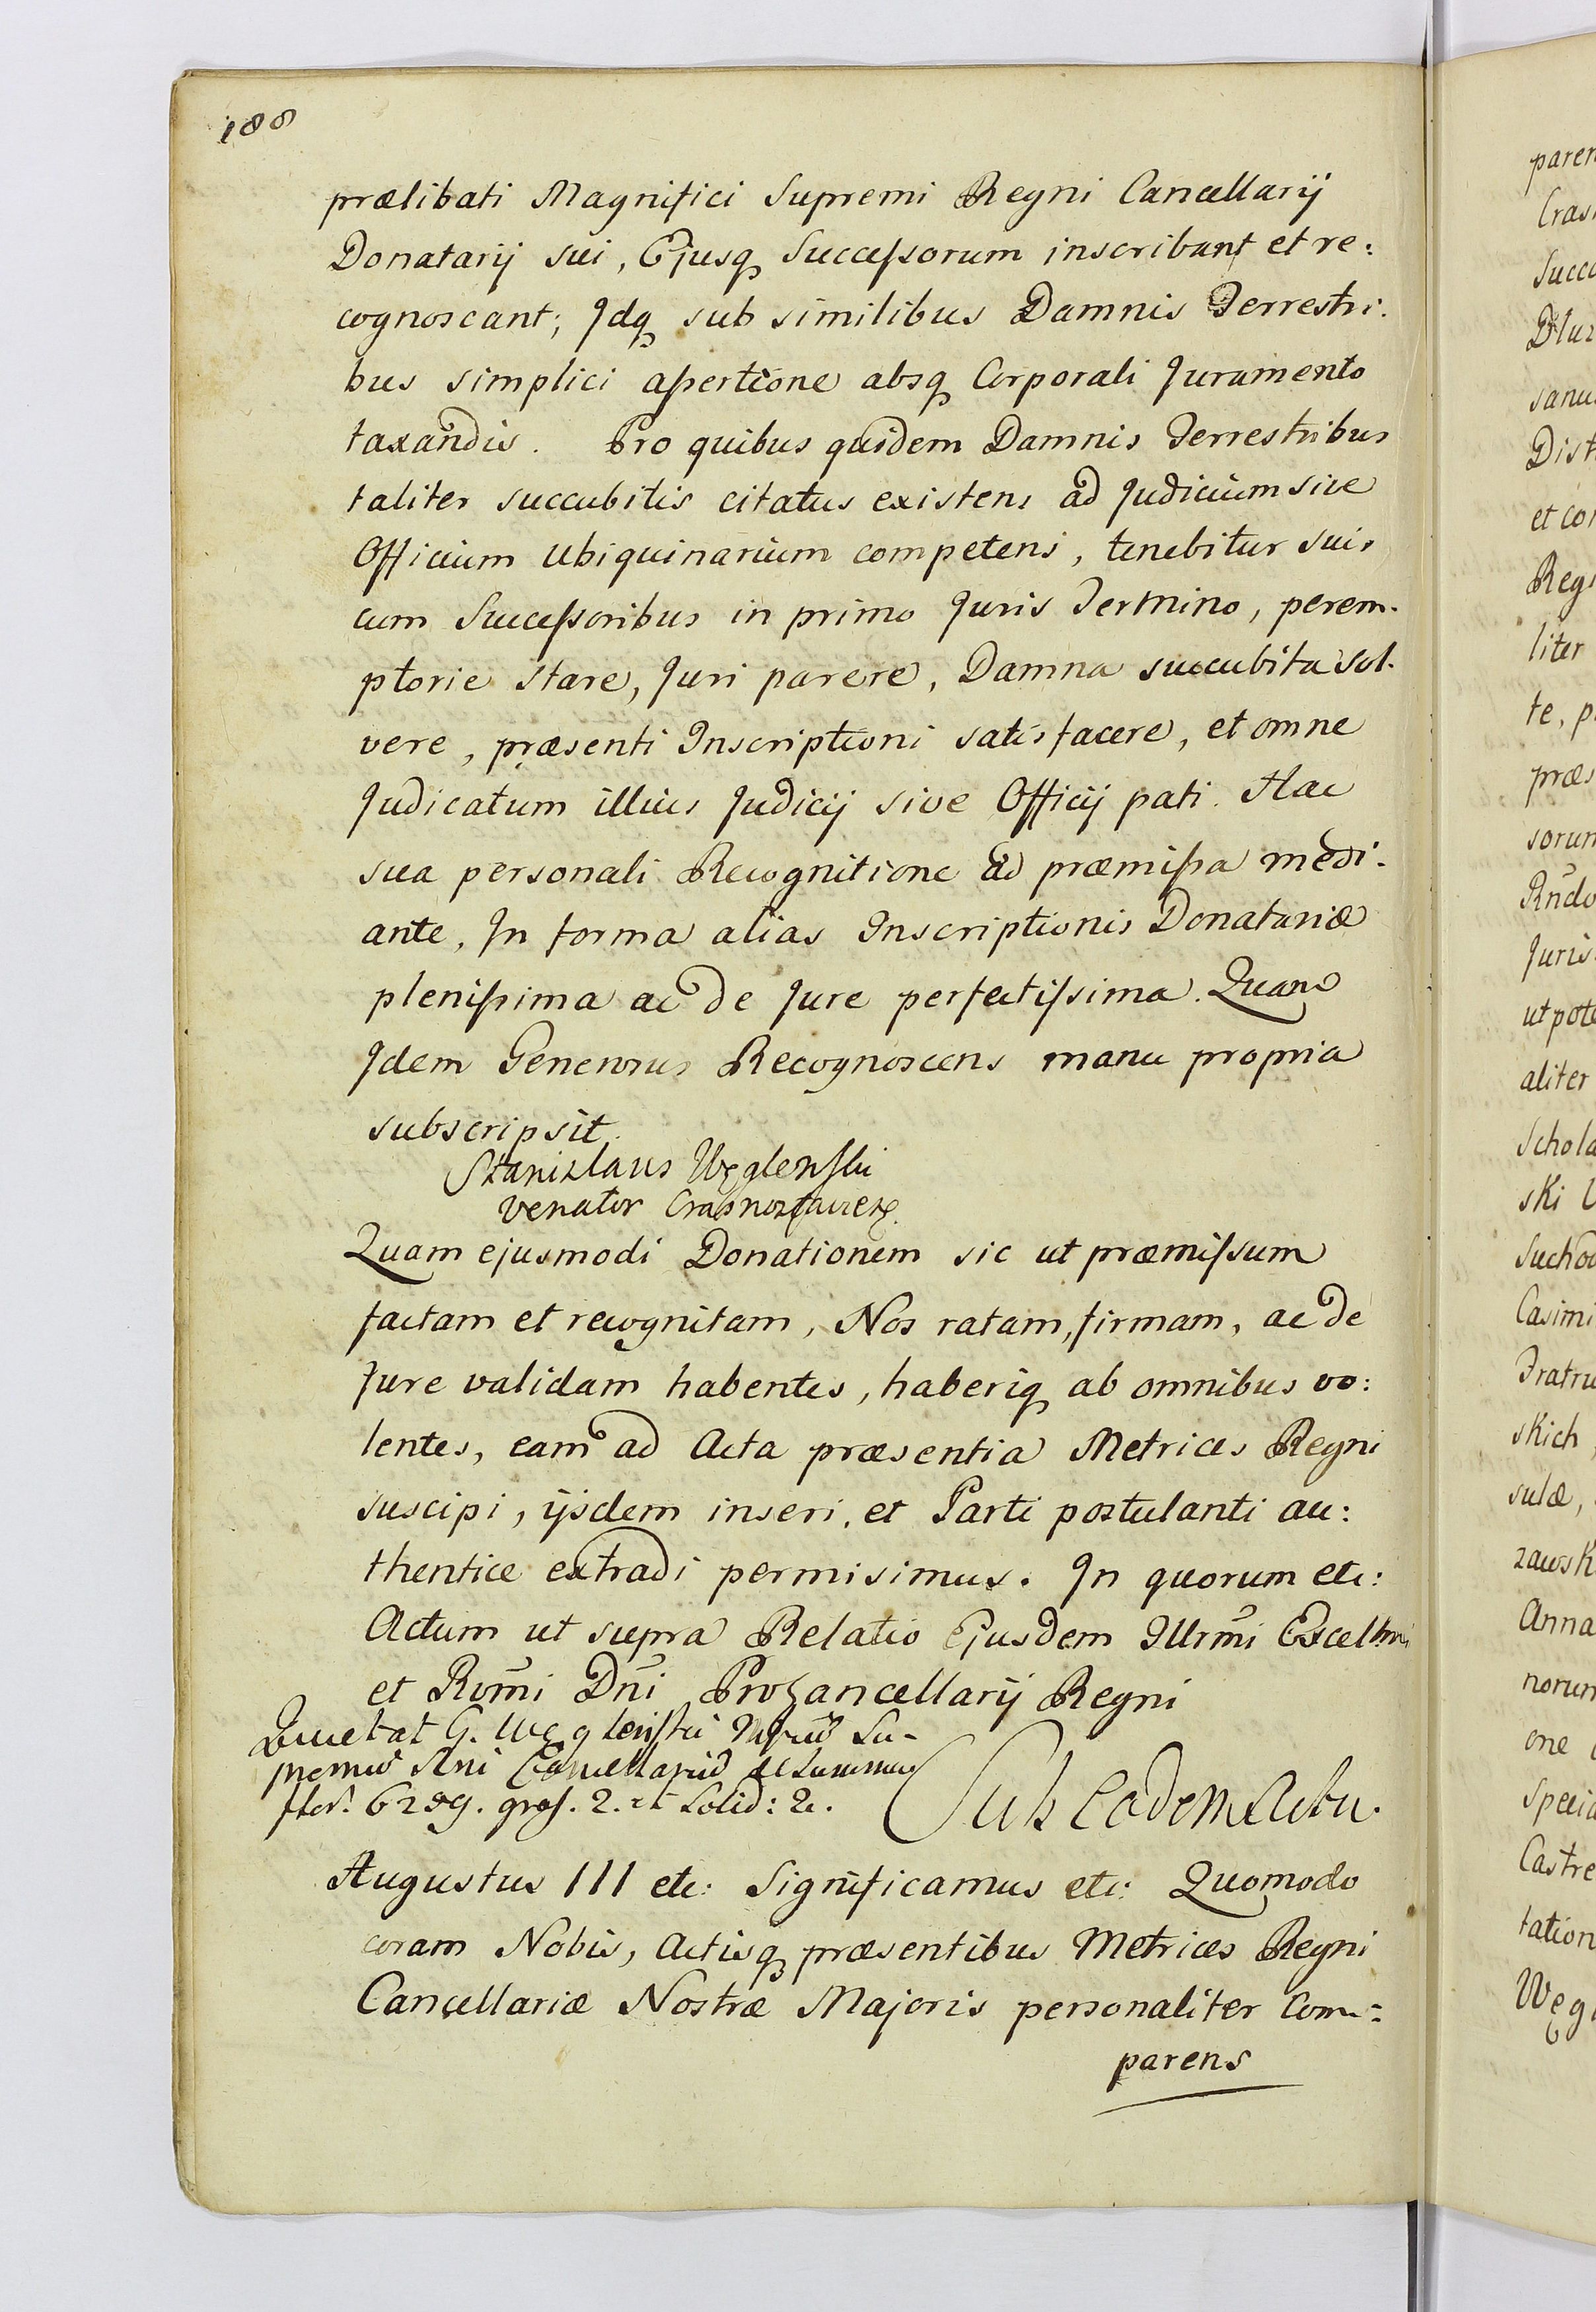 188
prælibati Magnifici Supremi Regni Cancellarij
Donatarij sui, Ejusq Successorum inscribant et re:
cognoscant; Idq sub similibus Damnis Terrestri:
bus simplici assertione absq Corporali Juramento
taxandis. Pro quibus quidem Damnis Terrestribus
taliter succubitis citatus existens ad Judicium sive
Officium ubiquinarium competens, tenebitur suis
cum Successoribus in primo Juris Termino, perem-
ptorie stare, Juri parere, Damna succubita sol-
vere, præsenti Inscriptioni satisfacere, et omne
Judicatum illius Judicij sive Officij pati. Hac
sua personali Recognitione ad præmissa medi-
ante, In forma alias Inscriptionis Donatariæ
plenissima ac de Jure perfectissima. Quam
Idem Generosus Recognoscens manu propria
subscripsit.
Stanislaus Węglenski
Venator Crasnostaviens
Quam ejusmodi Donationem sic ut præmissum
factam et recognitam, Nos ratam, firmam, ac de
Jure validam habentes, haberiq ab omnibus vo:
lentes, eam ad Acta præsentia Metrices Regni
suscipi, ijsdem inseri, et Parti postulanti au:
thentice extradi permisimus. In quorum etc:
Actum ut supra Relatio Ejusdem Illrmi Excellmi
et Rvmi Dni Procancellarij Regni
Quietat G. Węglenski Su-
premum Rni Cancellarium de Summa
flor. 6259. gros. 2. et Solid: 2.
Sub eadem Actu.
Augustus III etc: Significamus etc: Quomodo
coram Nobis, Actisq præsentibus Metrices Regni
Cancellariæ Nostræ Majoris personaliter Com-
parens